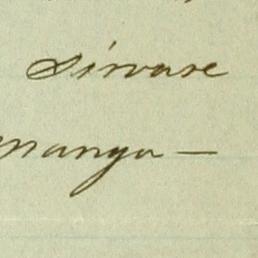 Sirvase
manga —